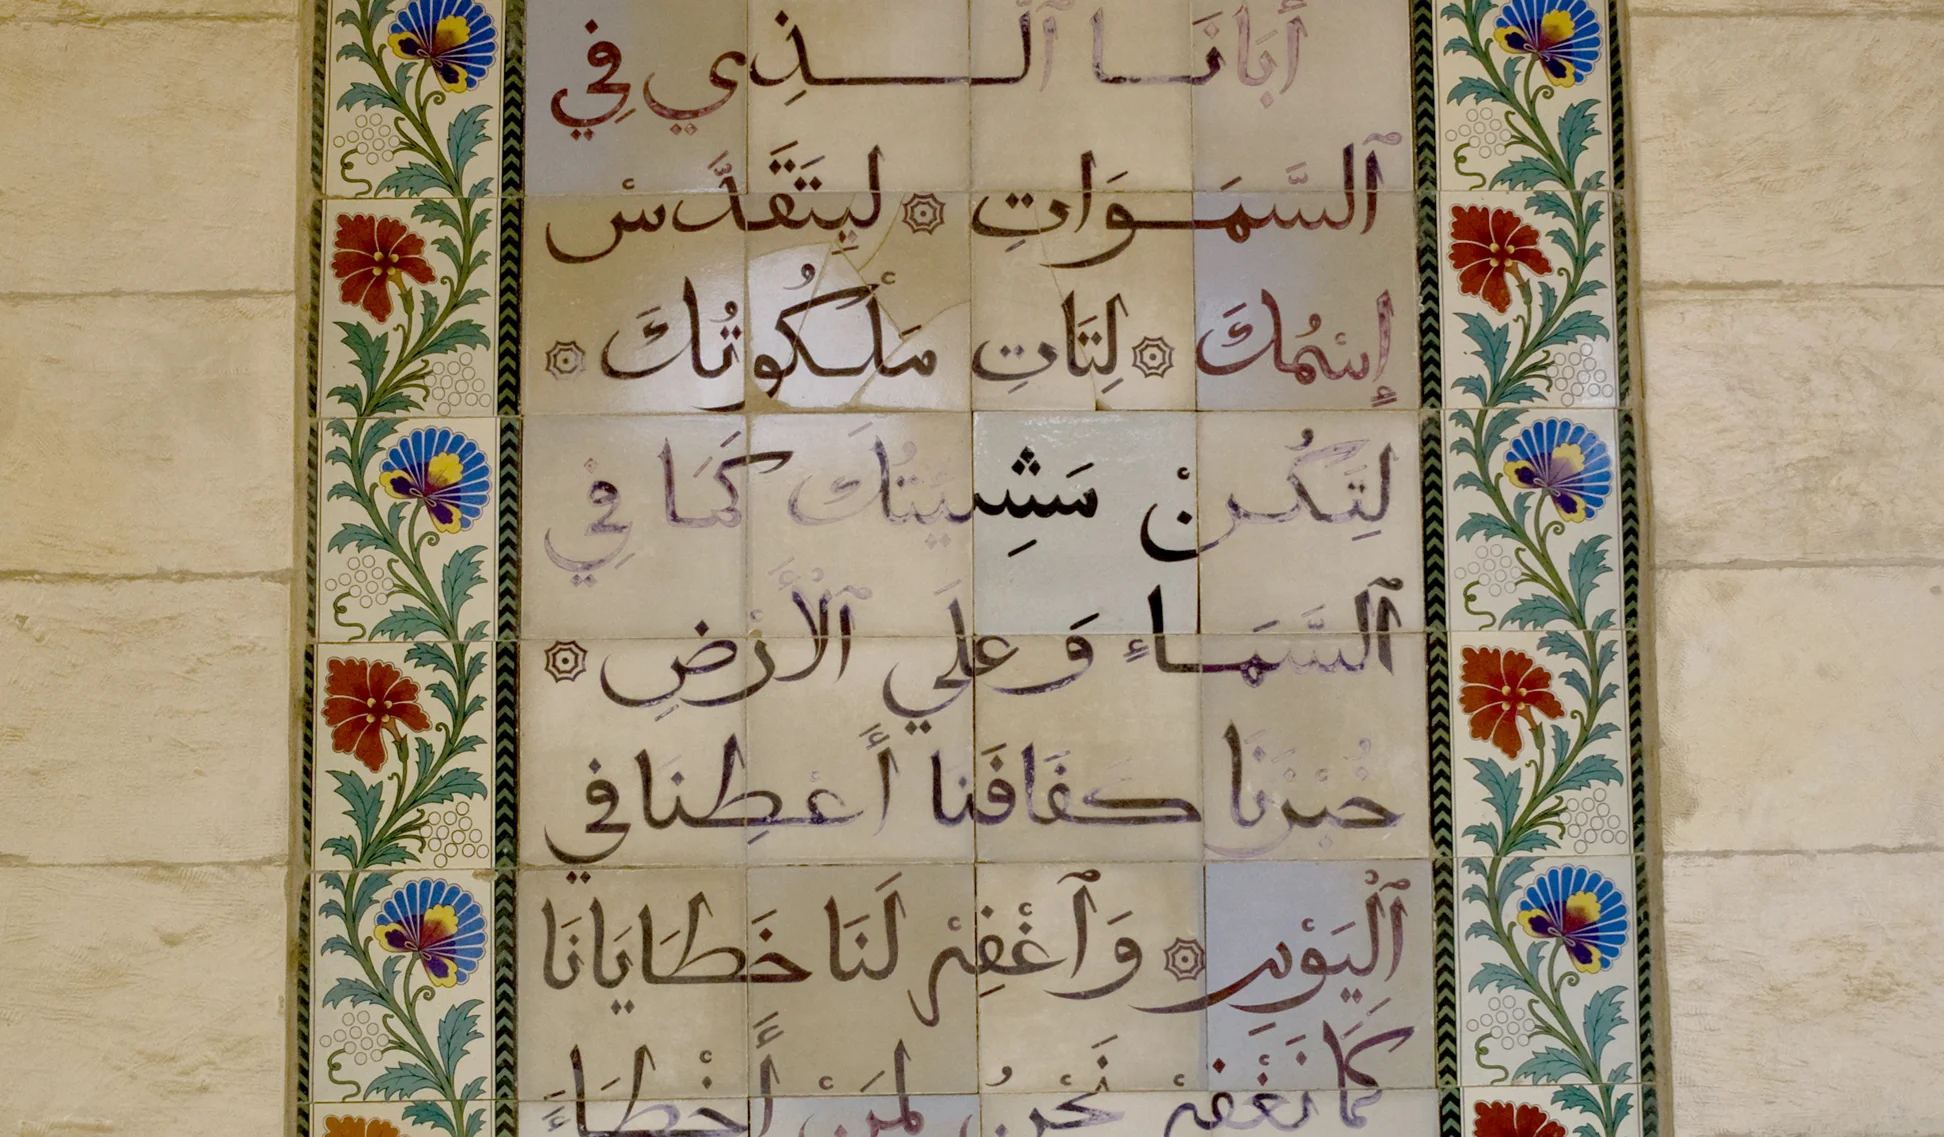 أَبَانَا ٱلَّذِي فِي
ٱلسَّمَوَاتِ ۞ لِيَتَقَدَّسْ
إِسْمُكَ ۞ لِتَاتِ مَلْكُوتُكَ ۞
لِتَكُنْ مَشِيَتُكَ كَمَا فِي
ٱلسَّمَاءِ وَ عَلَي ٱلْأَرْضِ ۞
خُبْزَنَا كَفَافَنَا أَعْطِنَا في
ٱلْيَوْمِ ۞ وَٱغْفِرْ لَنَا خَطَايَانَا
كَمَا نَغْفِرْ نَحْنُ لِمَنْ أَخْطَاءَ